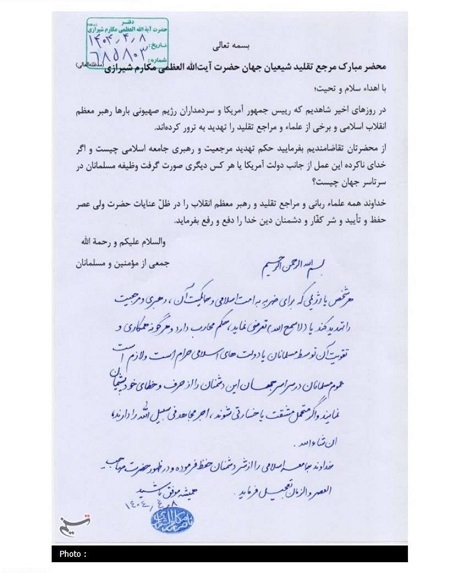 دفتر
حضرت آیة الله العظمی مکارم شیرازی
تاریخ: ۱۴۰۴/۴/۸
شماره: ۶۸۵۸۰۳
بسمه تعالی
محضر مبارک مرجع تقلید شیعیان جهان حضرت آیت‌الله العظمی مکارم شیرازی (مدظله‌العالی)
با اهداء سلام و تحیت؛
در روزهای اخیر شاهدیم که رییس جمهور آمریکا و سردمداران رژیم صهیونی بارها رهبر معظم
انقلاب اسلامی و برخی از علماء و مراجع تقلید را تهدید به ترور کرده‌اند.
از محضرتان تقاضامندیم بفرمایید حکم تهدید مرجعیت و رهبری جامعه اسلامی چیست و اگر
خدای ناکرده این عمل از جانب دولت آمریکا یا هر کس دیگری صورت گرفت وظیفه مسلمانان در
سرتاسر جهان چیست؟
خداوند همه علماء ربانی و مراجع تقلید و رهبر معظم انقلاب را در ظلّ عنایات حضرت ولی عصر
حفظ و تأیید و شر کفّار و دشمنان دین خدا را دفع و رفع بفرماید.
والسلام علیکم و رحمة الله
جمعی از مؤمنین و مسلمانان
بسم الله الرحمن الرحیم
هر شخص یا رژیمی که برای ضربه به امت اسلامی و حاکمیت آن، رهبری و مرجعیت
را تهدید کند یا (لاسمح الله) تعرضی نماید، حکم محارب دارد و هرگونه همکاری و
تقویت آن توسط مسلمانان یا دولت های اسلامی حرام است و لازم است
عموم مسلمانان در سراسر جهان این دشمنان را از حرف و خطای خود پشیمان
نمایند و اگر متحمل مشقت یا خسارتی شوند، اجر مجاهد فی سبیل الله را دارند،
ان شاء الله.
خداوند جامعه اسلامی را از شر دشمنان حفظ فرموده و در ظهور حضرت صاحب
العصر و الزمان تعجیل فرماید.
همیشه موفق باشید
۱۴۰۴/۴/۸
تسنیم
Photo :